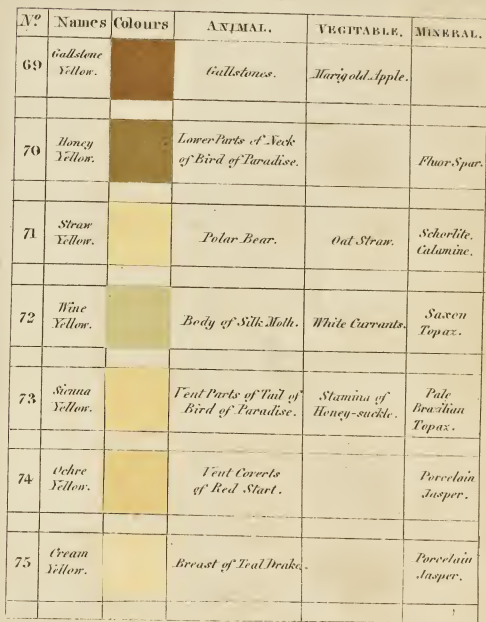 No Names Colours ANIMAL. VEGITABLE. MINERAL.
69 Gallstone Yellow. Gallstones. Marigold Apple.
70 Honey Yellow. Lower Parts of Neck of Bird of Paradise. Fluor Spar.
71 Straw Yellow. Polar Bear. Oat Straw. Schorlite. Calamine.
72 Wine Yellow. Body of Silk Moth. White Currants. Saxon Topaz.
73 Sienna Yellow. Vent Parts of Tail of Bird of Paradise. Stamina of Honey-suckle. Pale Brazilian Topaz.
74 Ochre Yellow. Vent Coverts of Red Start. Porcelain Jasper.
75 Cream Yellow. Breast of Teal Drake. Porcelain Jasper.